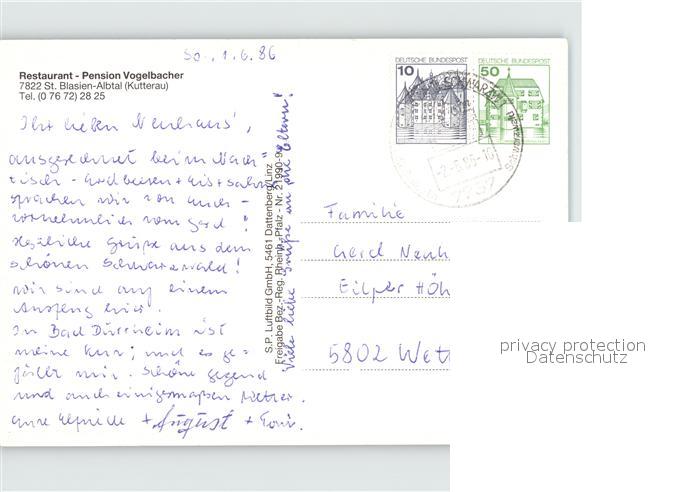 So., 1.6.86
Restaurant - Pension Vogelbacher
7822 St. Blasien-Albtal (Kutterau)
Tel. (0 76 72) 28 25
Ihr lieben Neuhaus',
ausgerechnet beim Nach-
tisch - Erdbeeren + Eis + Sahne
sprachen wir von Euch -
vornehmlich vom Gerd!
Herzliche Grüße aus dem
schönen Schwarzwald!
Wir sind auf einem
Ausflug hier.
In Bad Dürrheim ist
meine Kur; und es ge-
fällt mir. Schöne Gegend
und auch einigermaßen Wetter.
Eure + August + Fam.
Viele liebe Grüße an die Eltern!
S.P. Luftbild GmbH, 5461 Dattenberg/Linz
Freigabe Bez.-Reg. Rheinh.-Pfalz - Nr. 21990-9
DEUTSCHE BUNDESPOST
10
DEUTSCHE BUNDESPOST
50
-2.-6.86-10
7737
Familie
Gerd Neuh
Eilper Höh
5802 Wett
privacy protection
Datenschutz